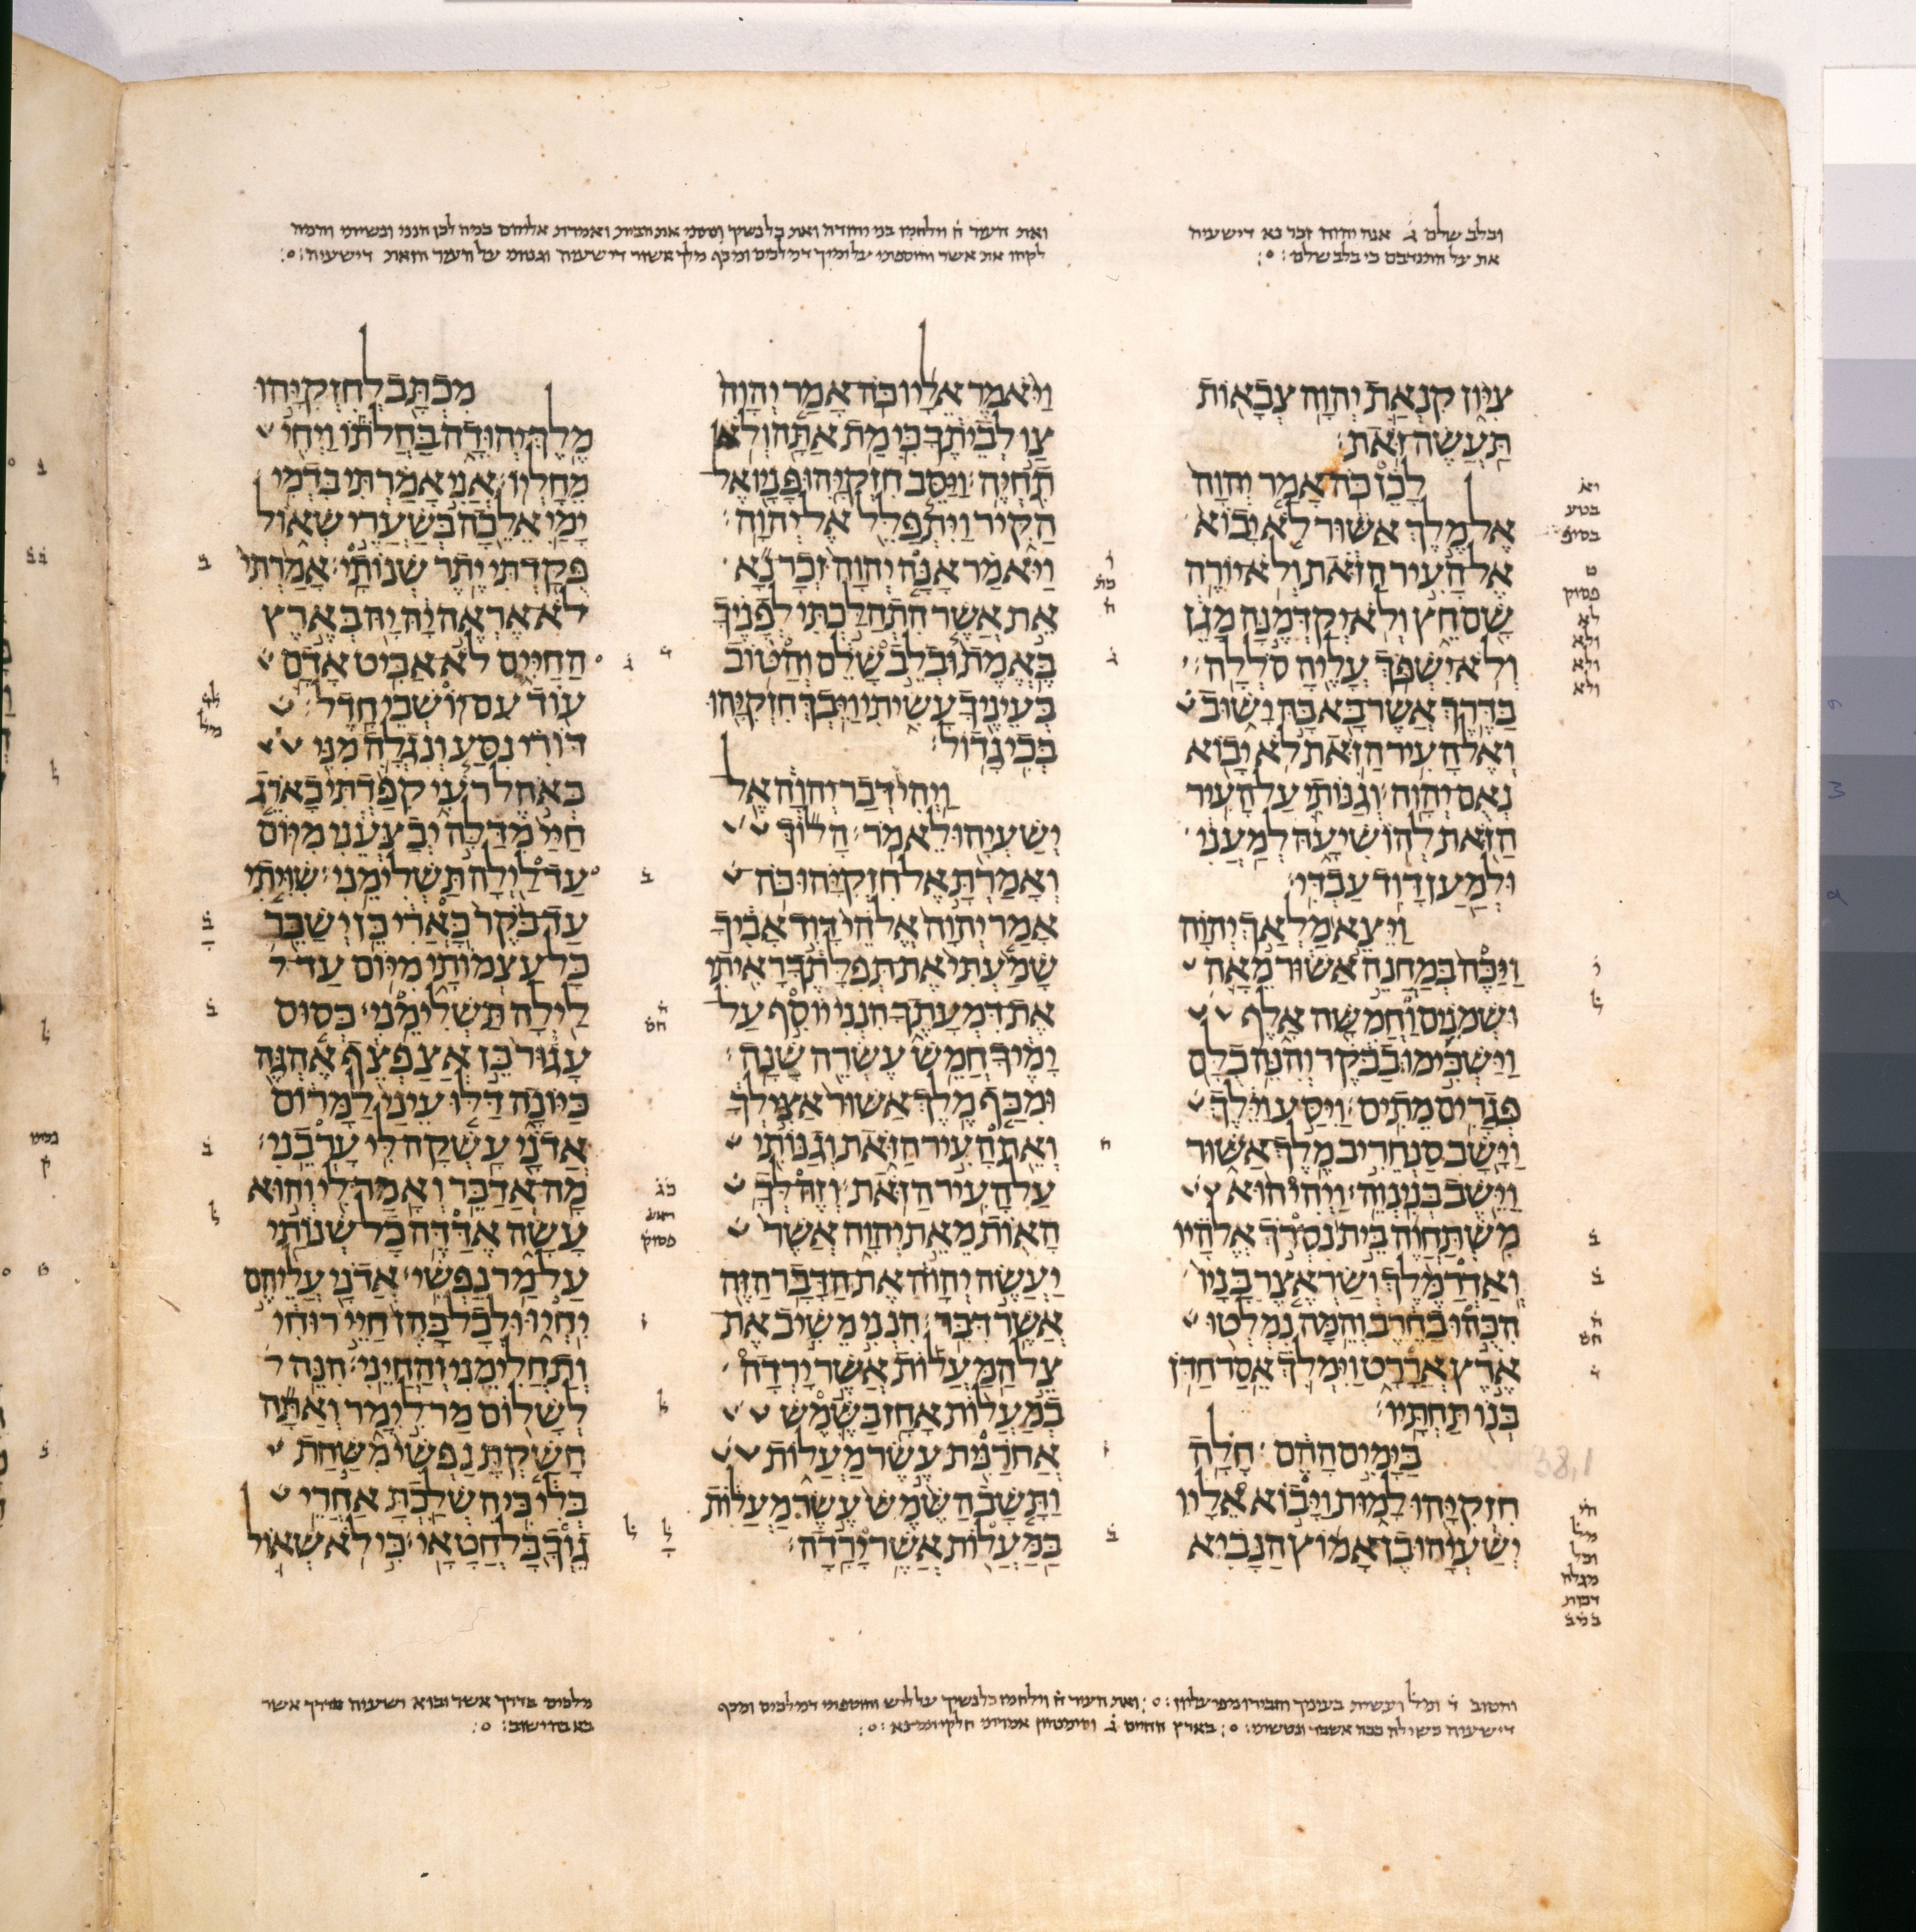 ובלב שלם ג̇ אנה יהוה זכר נא דישעיה
את על התנדבם כי בלב שלם
צִיּוֹן קִנְאַת יְהוָה צְבָאוֹת
תַּעֲשֶׂה זֹּאת׃
לָכֵן כֹּה אָמַר יְהוָה
אֶל מֶלֶךְ אַשּׁוּר לֹא יָבוֹא
אֶל הָעִיר הַזֹּאת וְלֹא יוֹרֶה
שָׁם חֵץ וְלֹא יְקַדְּמֶנָּה מָגֵן
וְלֹא יִשְׁפֹּךְ עָלֶיהָ סֹלְלָה׃
בַּדֶּרֶךְ אֲשֶׁר בָּא בָּהּ יָשׁוּב
וְאֶל הָעִיר הַזֹּאת לֹא יָבוֹא
נְאֻם יְהוָה׃ וְגַנּוֹתִי עַל הָעִיר
הַזֹּאת לְהוֹשִׁיעָהּ לְמַעֲנִי
וּלְמַעַן דָּוִד עַבְדִּי׃
וַיֵּצֵא מַלְאַךְ יְהוָה
וַיַּכֶּה בְּמַחֲנֵה אַשּׁוּר מֵאָה
וּשְׁמֹנִים וַחֲמִשָּׁה אָלֶף
וַיַּשְׁכִּימוּ בַבֹּקֶר וְהִנֵּה כֻלָּם
פְּגָרִים מֵתִים׃ וַיִּסַּע וַיֵּלֶךְ
וַיָּשָׁב סַנְחֵרִיב מֶלֶךְ אַשּׁוּר
וַיֵּשֶׁב בְּנִינְוֵה׃ וַיְהִי הוּא
מִשְׁתַּחֲוֶה בֵּית נִסְרֹךְ אֱלֹהָיו
וְאַדְרַמֶּלֶךְ וְשַׂרְאֶצֶר בָּנָיו
הִכֻּהוּ בַחֶרֶב וְהֵמָּה נִמְלְטוּ
אֶרֶץ אֲרָרָט וַיִּמְלֹךְ אֵסַר חַדֹּן
בְּנוֹ תַּחְתָּיו׃
בַּיָּמִים הָהֵם חָלָה
חִזְקִיָּהוּ לָמוּת וַיָּבוֹא אֵלָיו
יְשַׁעְיָהוּ בֶן אָמוֹץ הַנָּבִיא
וַיֹּאמֶר אֵלָיו כֹּה אָמַר יְהוָה
צַו לְבֵיתֶךָ כִּי מֵת אַתָּה וְלֹא
תִחְיֶה׃ וַיַּסֵּב חִזְקִיָּהוּ פָּנָיו אֶל
הַקִּיר וַיִּתְפַּלֵּל אֶל יְהוָה׃
וַיֹּאמַר אָנָּה יְהוָה זְכָר נָא
אֵת אֲשֶׁר הִתְהַלַּכְתִּי לְפָנֶיךָ
בֶּאֱמֶת וּבְלֵב שָׁלֵם וְהַטּוֹב
בְּעֵינֶיךָ עָשִׂיתִי וַיֵּבְךְּ חִזְקִיָּהוּ
בְּכִי גָדוֹל׃
וַיְהִי דְּבַר יְהוָה אֶל
יְשַׁעְיָהוּ לֵאמֹר׃ הָלוֹךְ
וְאָמַרְתָּ אֶל חִזְקִיָּהוּ כֹּה
אָמַר יְהוָה אֱלֹהֵי דָּוִד אָבִיךָ
שָׁמַעְתִּי אֶת תְּפִלָּתֶךָ רָאִיתִי
אֶת דִּמְעָתֶךָ הִנְנִי יוֹסִף עַל
יָמֶיךָ חֲמֵשׁ עֶשְׂרֵה שָׁנָה׃
וּמִכַּף מֶלֶךְ אַשּׁוּר אַצִּילְךָ
וְאֵת הָעִיר הַזֹּאת וְגַנּוֹתִי
עַל הָעִיר הַזֹּאת׃ וְזֶה לְּךָ
הָאוֹת מֵאֵת יְהוָה אֲשֶׁר
יַעֲשֶׂה יְהוָה אֶת הַדָּבָר הַזֶּה
אֲשֶׁר דִּבֵּר׃ הִנְנִי מֵשִׁיב אֶת
צֵל הַמַּעֲלוֹת אֲשֶׁר יָרְדָה
בְמַעֲלוֹת אָחָז בַּשֶּׁמֶשׁ
אֲחֹרַנִּית עֶשֶׂר מַעֲלוֹת
וַתָּשָׁב הַשֶּׁמֶשׁ עֶשֶׂר מַעֲלוֹת
בַּמַּעֲלוֹת אֲשֶׁר יָרָדָה׃
מִכְתָּב לְחִזְקִיָּהוּ
מֶלֶךְ יְהוּדָה בַּחֲלֹתוֹ וַיְחִי
מֵחָלְיוֹ׃ אֲנִי אָמַרְתִּי בִּדְמִי
יָמַי אֵלֵכָה בְּשַׁעֲרֵי שְׁאוֹל
פֻּקַּדְתִּי יֶתֶר שְׁנוֹתָי׃ אָמַרְתִּי
לֹא אֶרְאֶה יָהּ יָהּ בְּאֶרֶץ
הַחַיִּים לֹא אַבִּיט אָדָם
עוֹד עִם יוֹשְׁבֵי חָדֶל׃
דּוֹרִי נִסַּע וְנִגְלָה מִנִּי
כְּאֹהֶל רֹעִי קִפַּדְתִּי כָאֹרֵג
חַיַּי מִדַּלָּה יְבַצְּעֵנִי מִיּוֹם
עַד לַיְלָה תַּשְׁלִימֵנִי׃ שִׁוִּיתִי
עַד בֹּקֶר כָּאֲרִי כֵּן יְשַׁבֵּר
כָּל עַצְמוֹתָי מִיּוֹם עַד
לַיְלָה תַּשְׁלִימֵנִי׃ כְּסוּס
עָגוּר כֵּן אֲצַפְצֵף אֶהְגֶּה
כַּיּוֹנָה דַּלּוּ עֵינַי לַמָּרוֹם
אֲדֹנָי עָשְׁקָה לִּי עָרְבֵנִי׃
מָה אֲדַבֵּר וְאָמַר לִי וְהוּא
עָשָׂה אֶדַּדֶּה כָל שְׁנוֹתַי
עַל מַר נַפְשִׁי׃ אֲדֹנָי עֲלֵיהֶם
יִחְיוּ וּלְכָל בָּהֶן חַיֵּי רוּחִי
וְתַחֲלִימֵנִי וְהַחֲיֵינִי׃ הִנֵּה
לְשָׁלוֹם מַר לִי מָר וְאַתָּה
חָשַׁקְתָּ נַפְשִׁי מִשַּׁחַת
בְּלִי כִּי הִשְׁלַכְתָּ אַחֲרֵי
גֵוְךָ כָּל חֲטָאָי׃ כִּי לֹא שְׁאוֹל